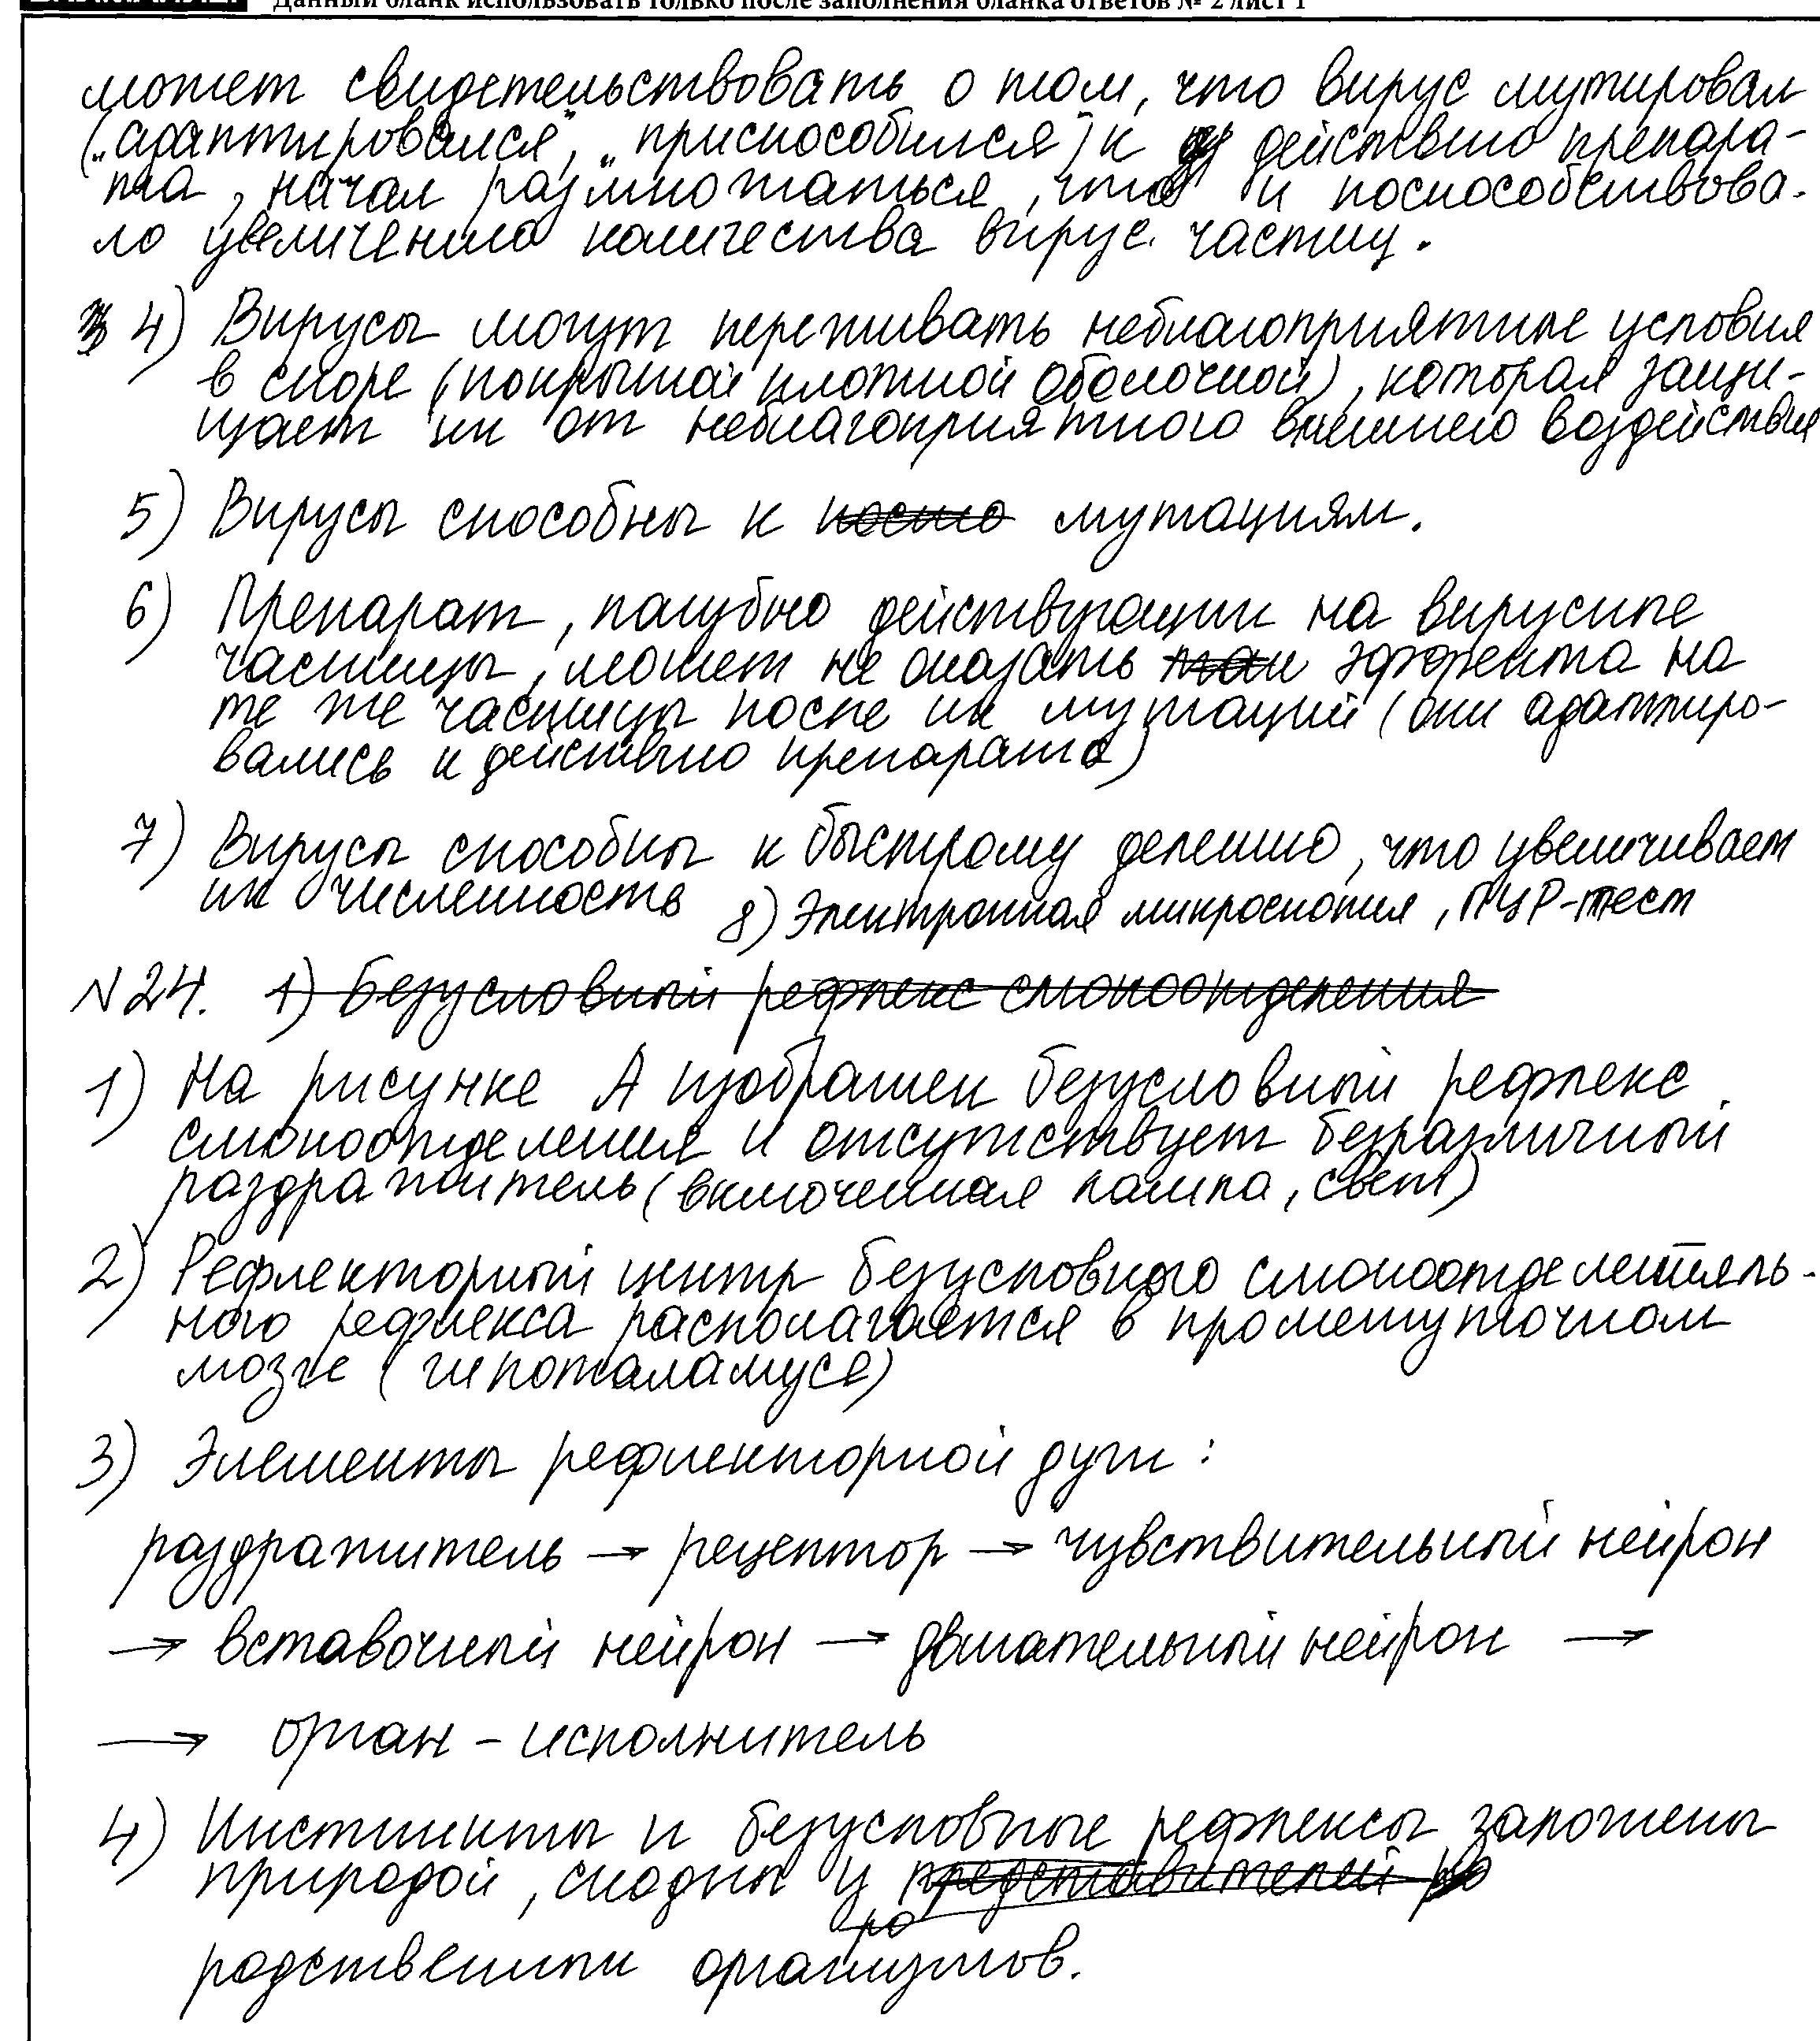 Данный бланк использовать только после заполнения бланка ответов № 2 лист 1
может свидетельствовать о том, что вирус мутировал
(„адаптировался", „приспособился") к действию препара-
та, начал размножаться, что и поспособствова-
ло увеличению количества вирус. частиц.
4) Вирусы могут переживать неблагоприятные условия
в споре (покрытой плотной оболочкой), которая защи-
щает их от неблагоприятного внешнего воздействия
5) Вирусы способны к мутациям.
6) Препарат, пагубно действующий на вирусные
частицы, может не оказать эффекта на
те же частицы после их мутаций (они адаптиро-
вались к действию препарата)
7) Вирусы способны к быстрому делению, что увеличивает
их численность 8) Электронная микроскопия, ПЦР-тест
№24. 1) Безусловный рефлекс слюноотделения
1) На рисунке А изображен безусловный рефлекс
слюноотделения и отсутствует безразличный
раздражитель (включенная лампа, свет)
2) Рефлекторный центр безусловного слюноотделитель-
ного рефлекса располагается в промежуточном
мозге (гипоталамусе)
3) Элементы рефлекторной дуги:
раздражитель → рецептор → чувствительный нейрон
→ вставочный нейрон → двигательный нейрон →
→ орган-исполнитель
4) Инстинкты и безусловные рефлексы заложены
природой, сходны у представителей
ро
родственных организмов.